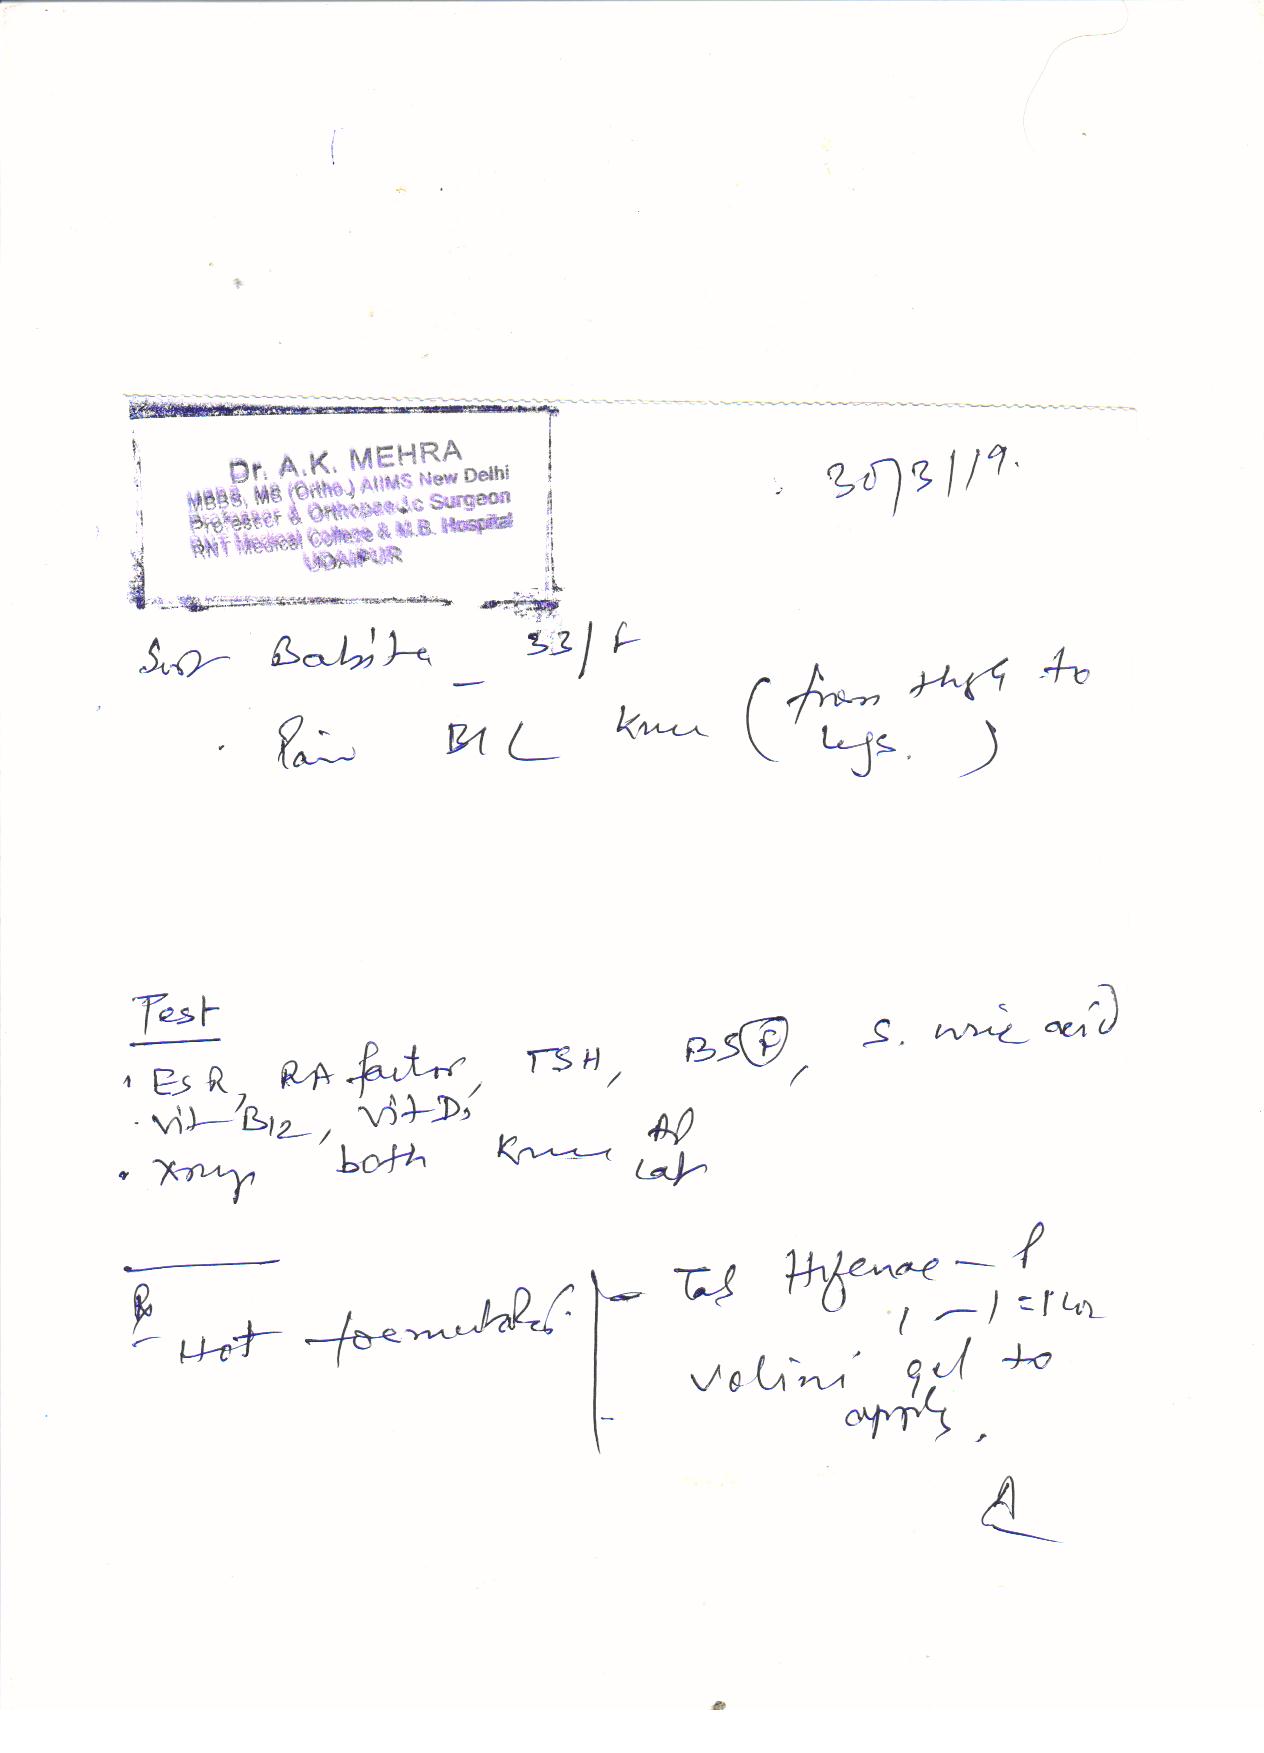 Dr. A.K. MEHRA
MBBS, MS (Ortho.) AIIMS New Delhi
Professor & Orthopaedic Surgeon
RNT Medical College & M.B. Hospital
UDAIPUR
30/3/19.
Smt Babita 33/F
Pain B/L Knee (from thigh to
legs.)
Test
ESR, RA factor, TSH, BSF, S. uric acid
Vit B12, Vit D3
Xray both Knee AP
Lat
Rx
- Hot
- Tab Hifenac-P
1 - 1
Volini gel to
apply.